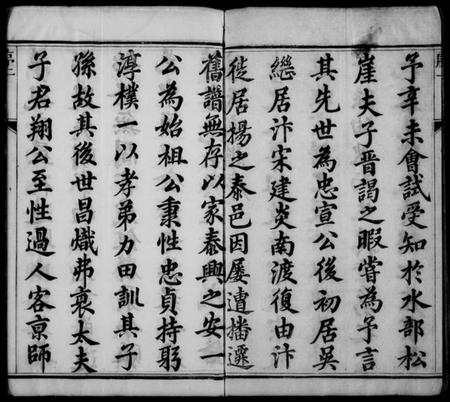 予辛未會試受知於水部松
崖夫子晋謁之暇嘗為予言
其先世為忠宣公後初居吳
繼居汴宋建炎南渡復由汴
徙居揚之泰邑因屢遭播遷
舊譜無存以家泰興之安一
公為始祖公秉性忠貞持躬
淳樸一以孝弟力田訓其子
孫故其後世昌熾弗衰太夫
子君翔公至性過人客京師